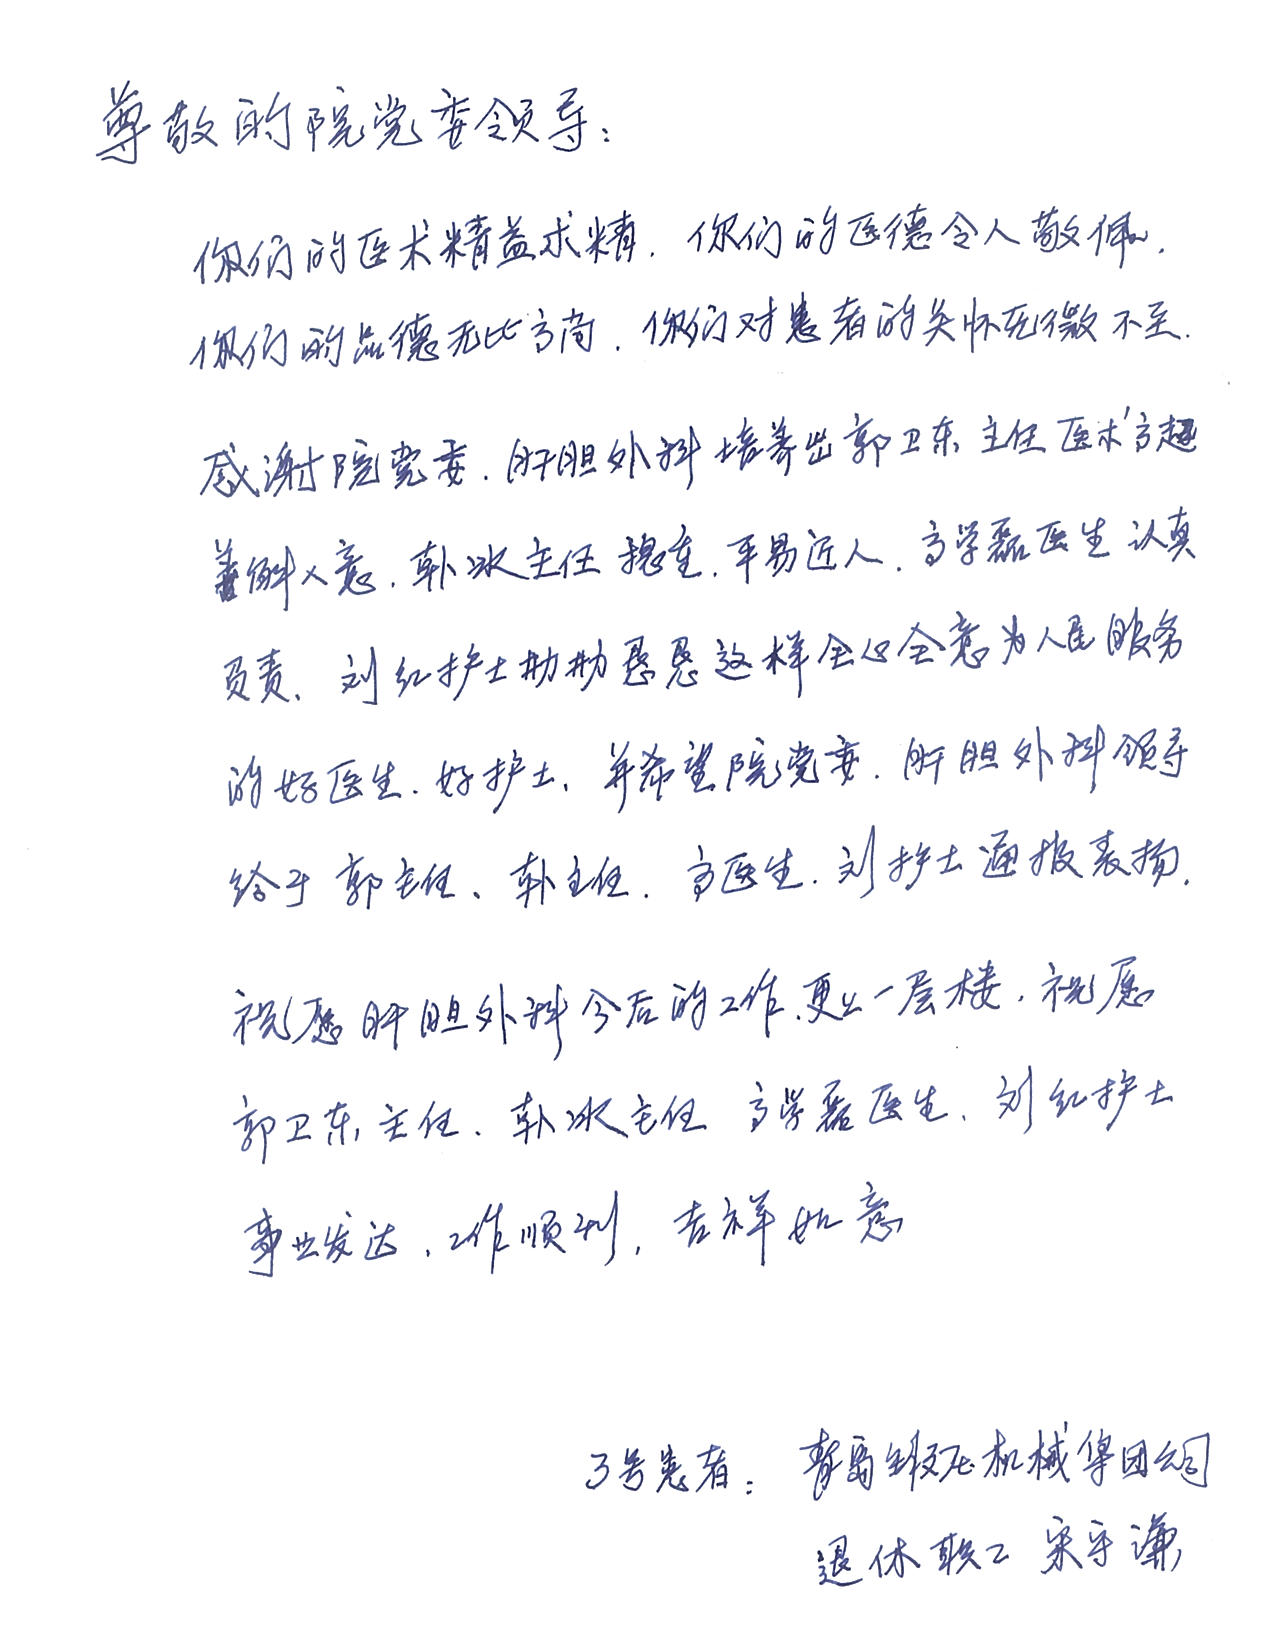 尊敬的院党委领导：
你们的医术精益求精．你们的医德令人敬佩．
你们的品德无比高尚．你们对患者的关怀无微不至．
感谢院党委．肝胆外科培养出郭卫东主任医术高超
善解人意．韩冰主任稳重．平易近人．高学磊医生认真
负责、刘红护士勤勤恳恳这样全心全意为人民服务
的好医生．好护士．并希望院党委．肝胆外科领导
给于郭主任、韩主任．高医生．刘护士通报表扬．
祝愿肝胆外科今后的工作．更上一层楼．祝愿
郭卫东主任、韩冰主任 高学磊医生．刘红护士
事业发达．工作顺利，吉祥如意
3号患者：青岛锻压机械集团公司
退休职工 宋守谦